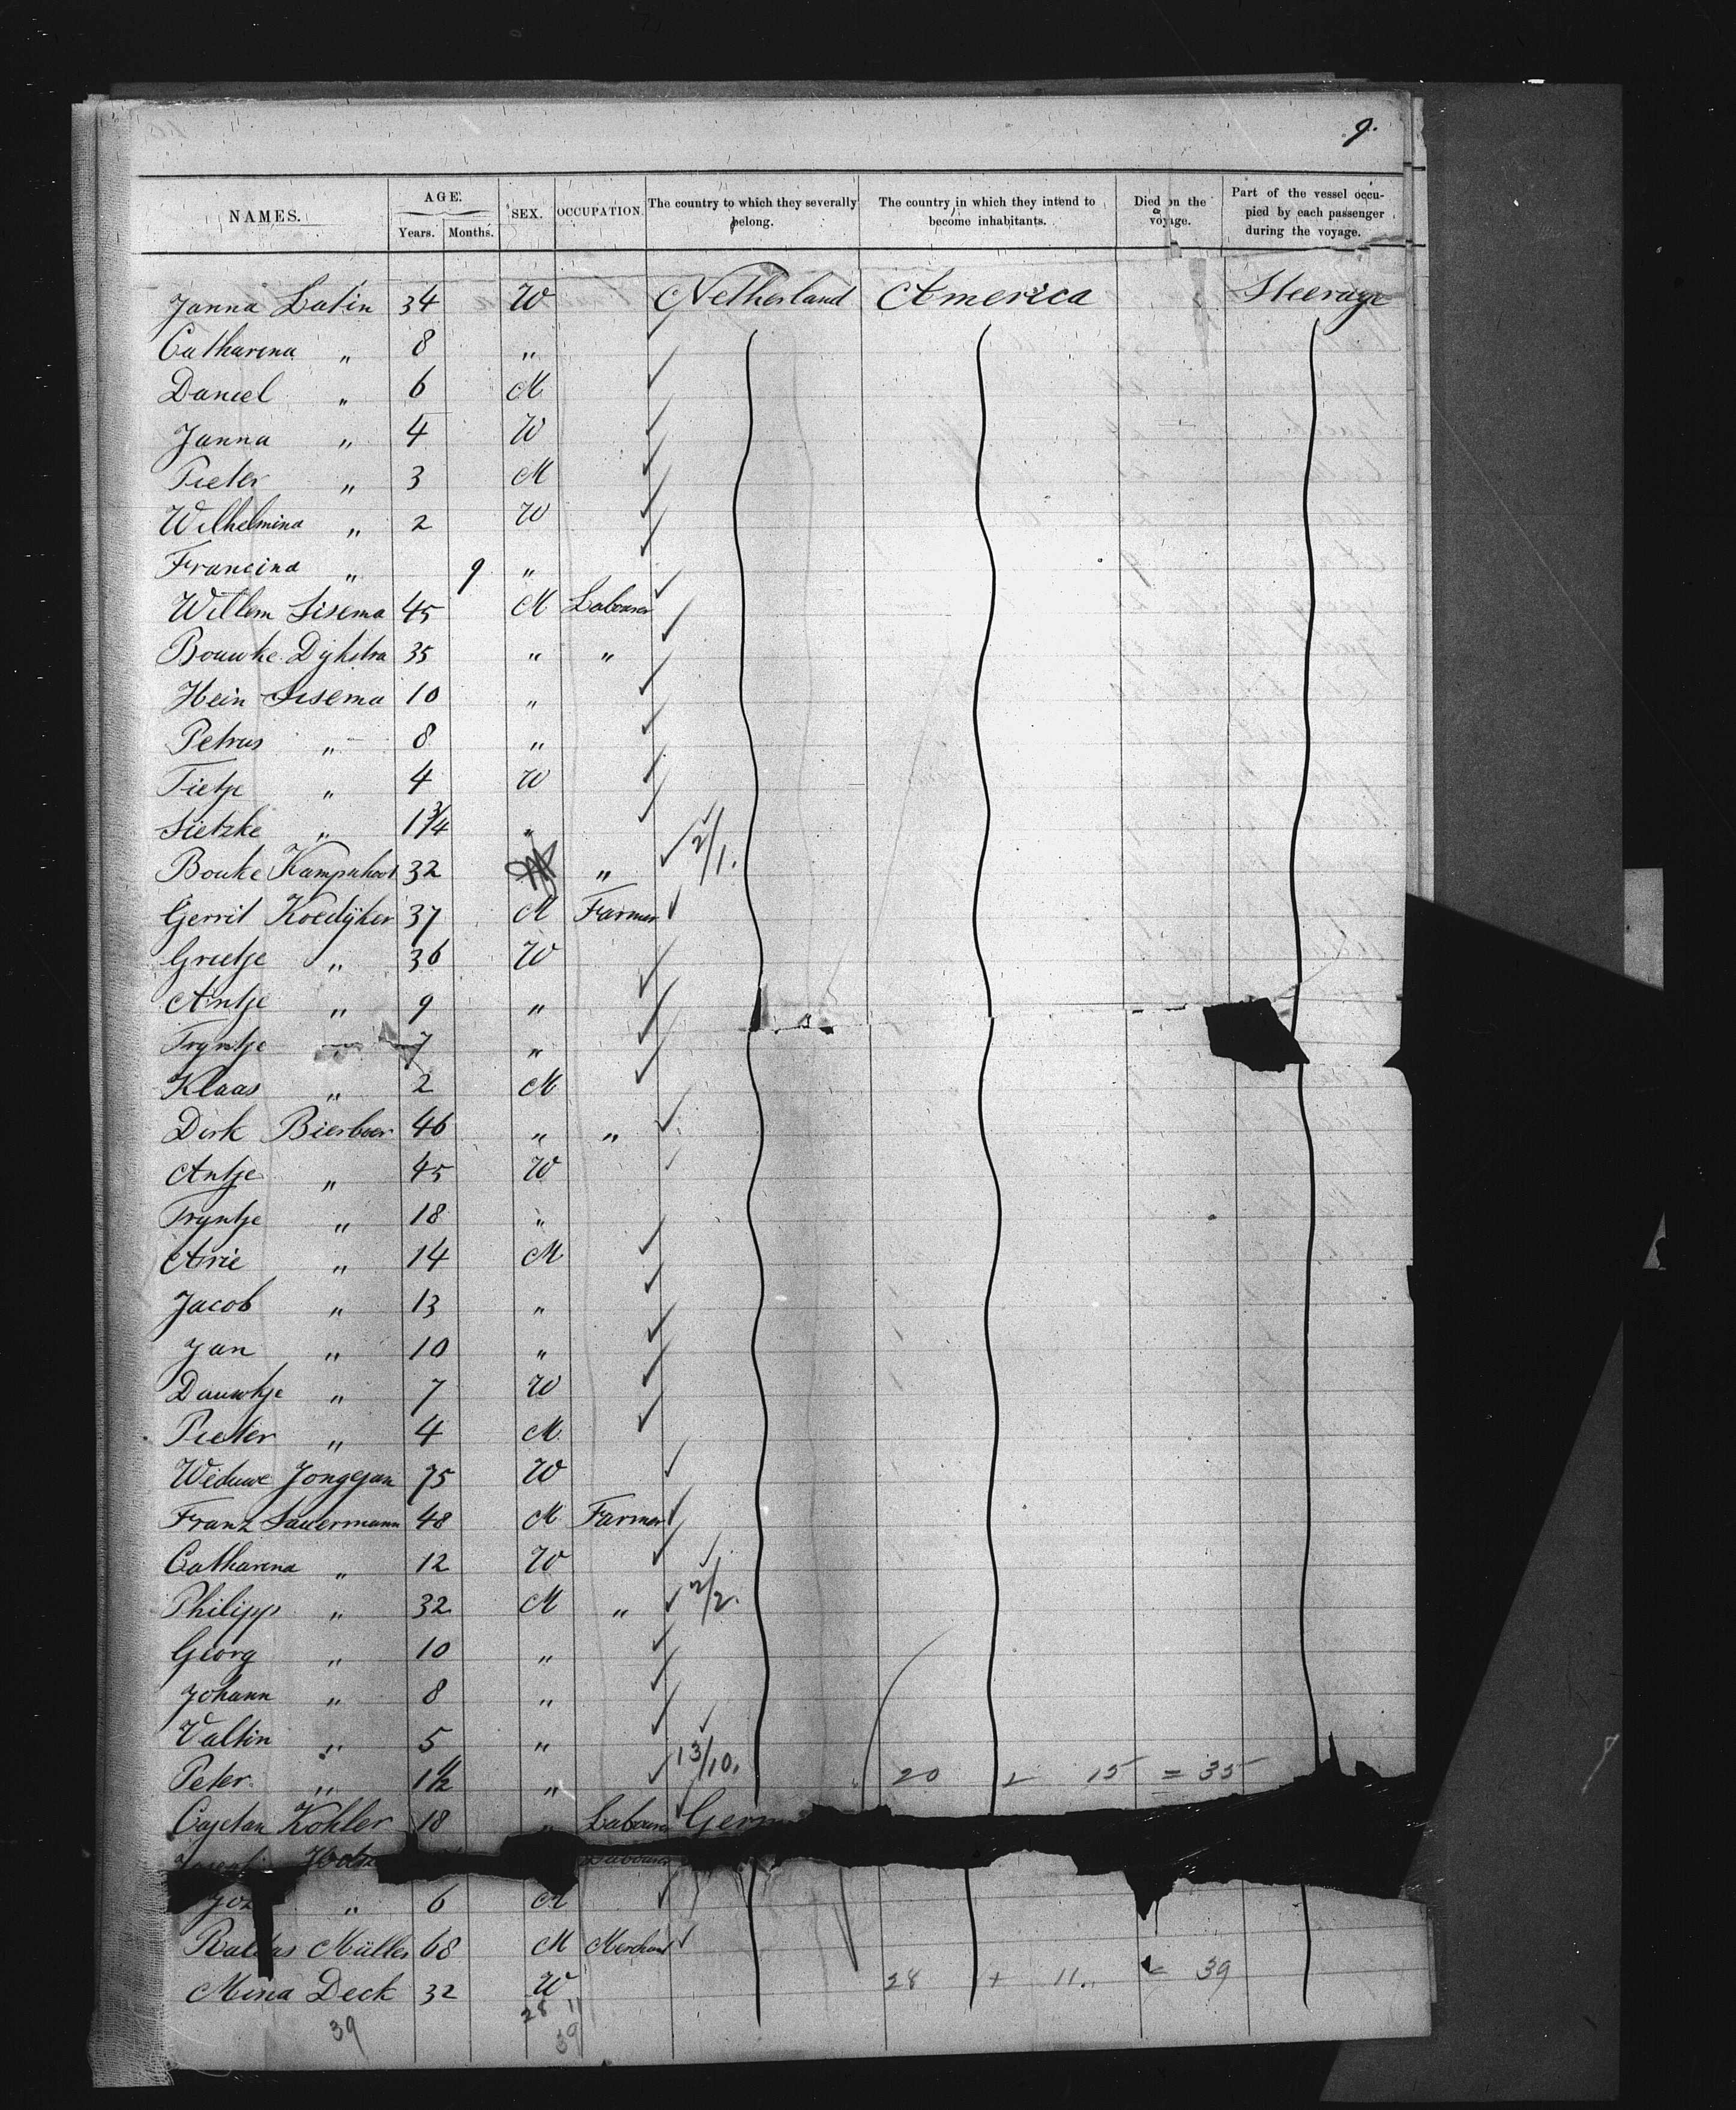 9.
NAMES. AGE. Years. Months. SEX. OCCUPATION. The country to which they severally belong. The country in which they intend to become inhabitants. Died on the voyage. Part of the vessel occupied by each passenger during the voyage.
Janna Latin 34 W Netherland America Steerage
Catharina " 8 "
Daniel " 6 M
Janna " 4 W
Pieter " 3 M
Wilhelmina " 2 W
Francina " 9 "
Willem Sisema 45 M Labourer
Bouwke Dykstra 35 " "
Hein Sisema 10 "
Petrus " 8 "
Tietje " 4 W
Sietzke " 1 3/4 "
Bouke 32 " 2/1.
Gerrit Koedijker 37 M Farmer
Grietje " 36 W
Antje " 9 "
Tryntje " 7 "
Klaas " 2 M
Dirk Bierboer 46 " "
Antje " 45 W
Tryntje " 18 "
Arie " 14 M
Jacob " 13 "
Jan " 10 "
Douwtje " 7 W
Pieter " 4 M
Weduwe Jongejan 75 W
Franz Sauermann 48 M Farmer
Catharina " 12 W
Philipp " 32 M " 2/2.
Georg " 10 "
Johann " 8 "
Valtin " 5 "
Peter " 1 1/2 " 13/10. 20 + 15 = 35
Cajetan Kohler 18 " Labourer Germ
Labourer
" 6 M
Müller 68 M Merchant
Mina Deck 32 W 28 + 11. = 39
39 28 11
39